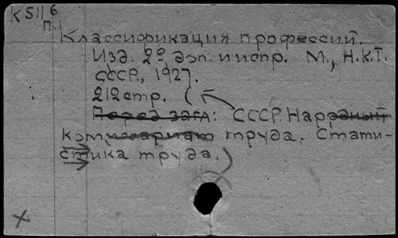 K5116
П
Классификация профессий.
Изд. 2ое доп. и испр. М., Н.К.Т.
СССР, 1927.
212 стр.
Перед загл: СССР. Народный
комиссариат труда. Стати-
стика труда.)